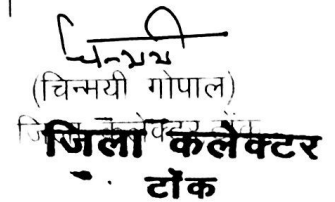 चिन्मयी
(चिन्मयी गोपाल)
जिला कलेक्टर टोंक
जिला कलैक्टर
टोंक